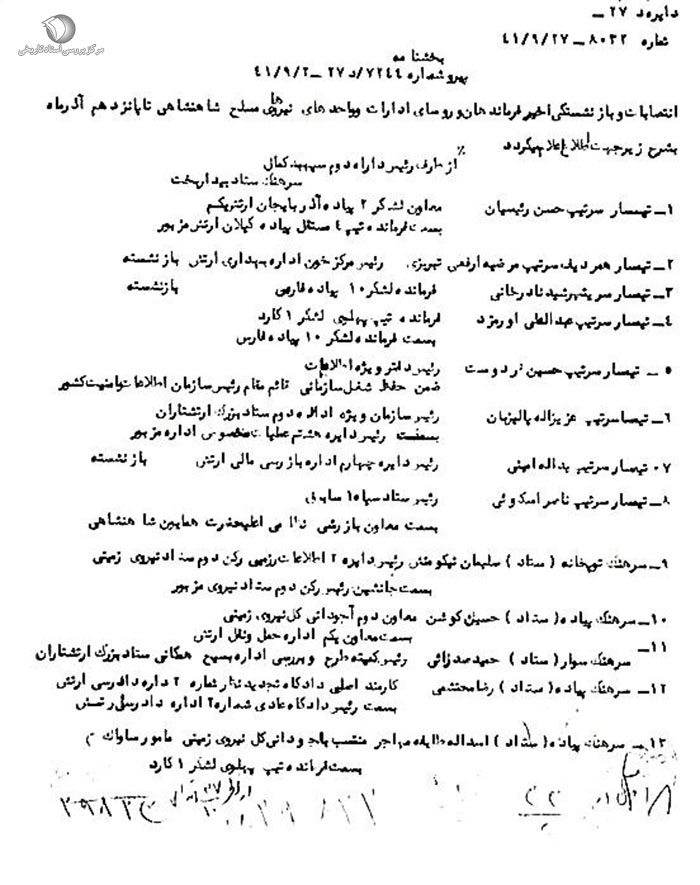 مرکز بررسی اسناد تاریخی
دایره ۲۷ــ
شماره ۸۰۳۲ــ۴۱/۹/۲۷
بخشنامه
پیرو شماره ۷۲۴۴/د ۲۷ــ۴۱/۹/۲
انتصابات و بازنشستگی اخیر فرماندهان و روسای ادارات و واحدهای نیروهای مسلح شاهنشاهی تا پانزدهم آذرماه
بشرح زیر جهت اطلاع اعلام میگردد
از طرف رئیس اداره دوم سپهبد کمالی
سرهنگ ستاد بیداربخت
۱ــ تیمسار سرتیپ حسن رئیسیان معاون لشگر ۲ پیاده آذربایجان ارتش یکم
بسمت فرمانده تیپ ٤ مستقل پیاده گیلان ارتش مزبور
۲ــ تیمسار همردیف سرتیپ مرضیه ارفعی تبریزی رئیس مرکز خون اداره بهداری ارتش بازنشسته
۳ــ تیمسار سرتیپ رشید نادرخانی فرمانده لشگر ۱۰ پیاده فارس بازنشسته
٤ــ تیمسار سرتیپ عبدالعلی اورمزد فرمانده تیپ پهلوی لشگر ۱ گارد
بسمت فرمانده لشگر ۱۰ پیاده فارس
۵ ــ تیمسار سرتیپ حسین فردوست رئیس دفتر ویژه اطلاعات
ضمن حفظ شغل سازمانی قائم مقام رئیس سازمان اطلاعات و امنیت کشور
۶ــ تیمسار سرتیپ عزیزاله پالیزبان رئیس سازمان ویژه اداره دوم ستاد بزرگ ارتشتاران
بسمت رئیس دایره هشتم عملیات مخصوص اداره مزبور
۰۷ تیمسار سرتیپ یداله امینی رئیس دایره چهارم اداره بازرسی مالی ارتش بازنشسته
۸ــ تیمسار سرتیپ ناصر اسکوئی رئیس ستاد سپاه ۱ سابق
بسمت معاون بازرسی نظامی اعلیحضرت همایون شاهنشاهی
۹ــ سرهنگ توپخانه ( ستاد ) سلیمان نیکومنش رئیس دایره ۲ اطلاعات رزمی رکن دوم ستاد نیروی زمینی
بسمت جانشین رئیس رکن دوم ستاد نیروی مزبور
۱۰ــ سرهنگ پیاده ( ستاد ) حسین کوشن معاون دوم آجودانی کل نیروی زمینی
بسمت معاون یکم اداره حمل و نقل ارتش
۱۱ــ سرهنگ سوار ( ستاد ) حمید صدرائی رئیس کمیته طرح و بررسی اداره بسیج همگانی ستاد بزرگ ارتشتاران
۱۲ــ سرهنگ پیاده ( ستاد ) رضا محتشمی کارمند اصلی دادگاه تجدید نظر شماره ۲ اداره دادرسی ارتش
بسمت رئیس دادگاه عادی شماره ۲ اداره دادرسی ارتش
۱۳ــ سرهنگ پیاده ( ستاد ) اسداله مهاجر منتسب بآجودانی کل نیروی زمینی مامور ساواک
بسمت فرمانده تیپ پهلوی لشگر ۱ گارد